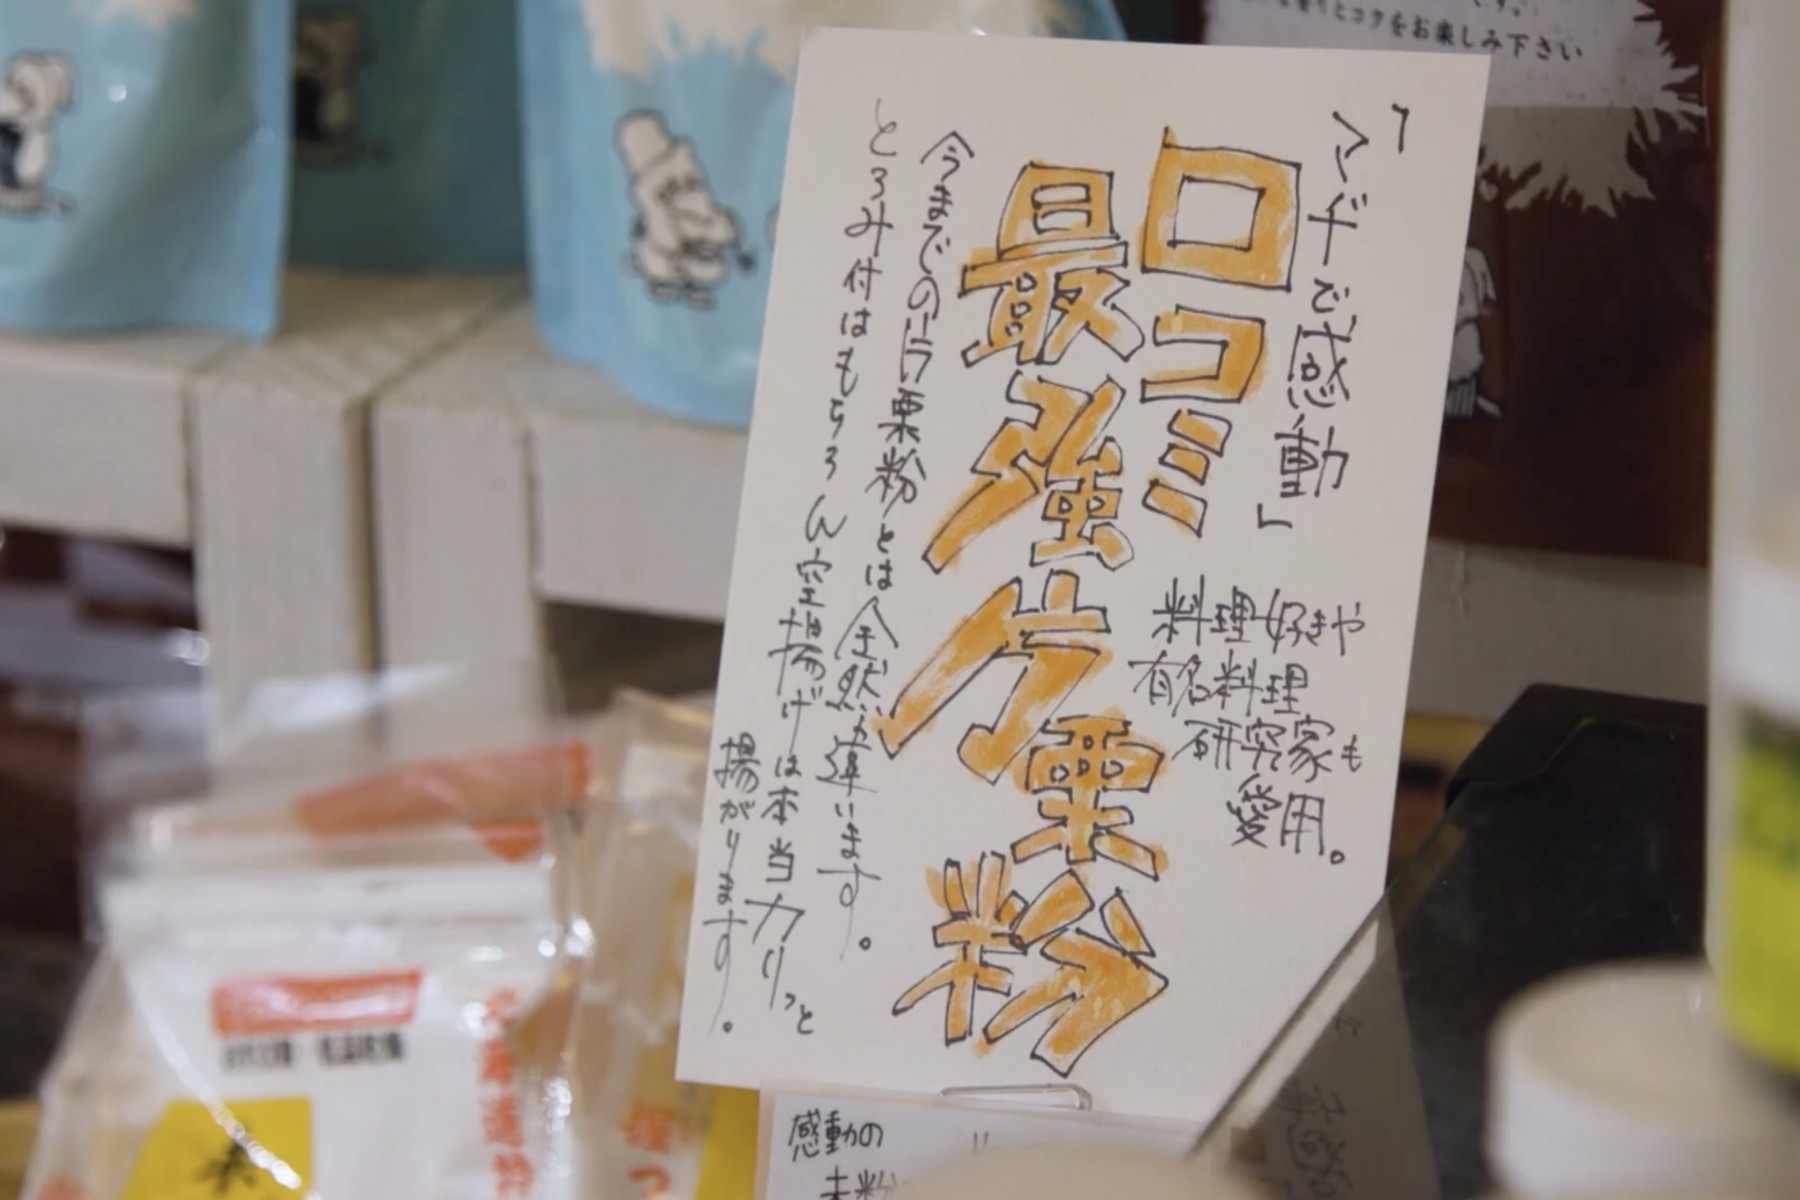 香りとコクをお楽しみ下さい
「マヂで感動」
口コミ
最強片栗粉
料理好きや
有名料理
研究家も
愛用。
今までの片栗粉とは全然違います。
とろみ付はもちろん空揚げは本当カリッと
揚がります。
感動の